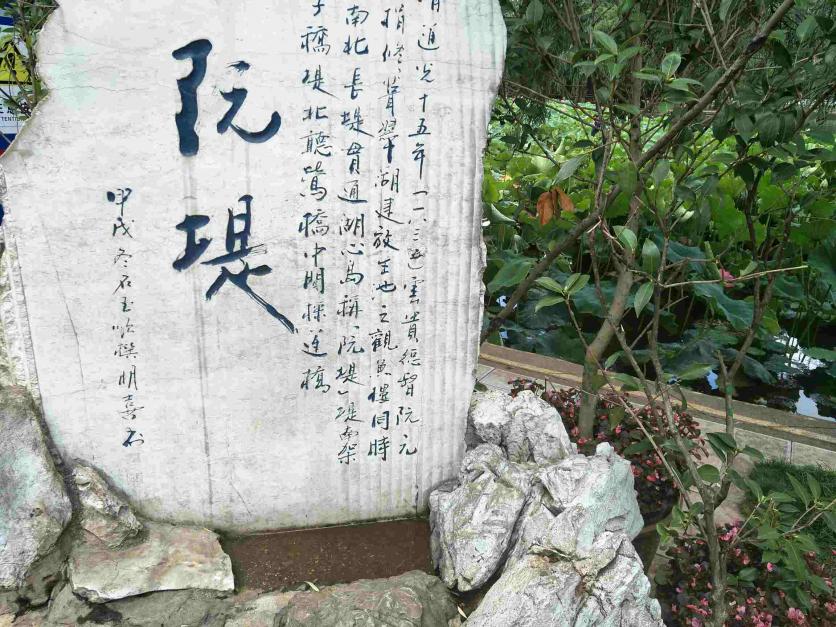 阮堤
清道光十五年一八三五雲貴總督阮元
捐修葺翠湖建放生池之觀魚樓同時
南北長堤貫通湖心島稱「阮堤」堤南架
子橋堤北聽鶯橋中間採蓮橋
甲戌冬石玉順撰明喜書